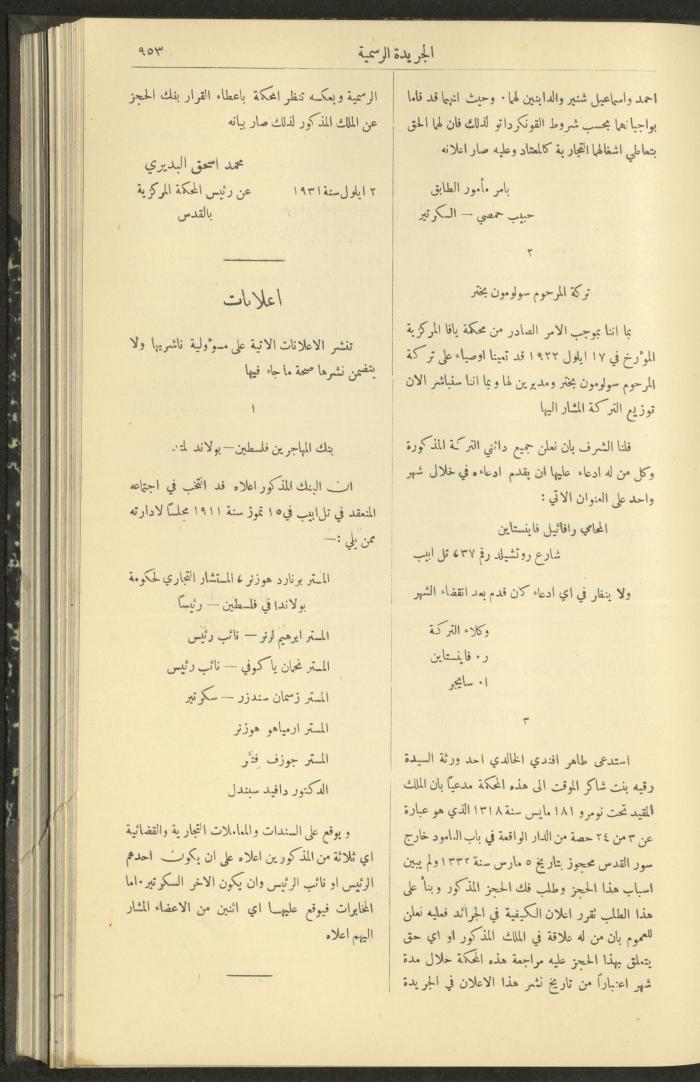 الجريدة الرسمية
٩٥٣
احمد واسماعيل شنير والداينين لهما٠ وحيث انهما قد قاما
بواجباتهما بحسب شروط القونكرداتو لذلك فان لهما الحق
بتعاطي اشغالهما التجارية كالمعتاد وعليه صار اعلانه
بامر مأمور الطابق
حبيب حمصي — السكرتير
٢
تركة المرحوم سولومون بختر
بما اننا بموجب الامر الصادر من محكمة يافا المركزية
المؤرخ في ١٧ ايلول ١٩٢٢ قد تعينا اوصياء على تركة
المرحوم سولومون بختر ومديرين لها وبما اننا سنباشر الان
توزيع التركة المشار اليها
فلنا الشرف بان نعلن جميع دائني التركة المذكورة
وكل من له ادعاء عليها ان يقدم ادعاءه في خلال شهر
واحد على العنوان الاتي :
المحامي رافائيل فاينستاين
شارع روتشيلد رقم ٣٧، تل ابيب
ولا ينظر في اي ادعاء كان قدم بعد انقضاء الشهر
وكلاء التركة
ر٠ فاينستاين
ا٠ سايجر
٣
استدعى طاهر افندي الخالدي احد ورثة السيدة
رقيه بنت شاكر الموقت الى هذه المحكمة مدعياً بان الملك
المقيد تحت نومرو ١٨١ مايس سنة ١٣١٨ الذي هو عبارة
عن ٣ من ٢٤ حصة من الدار الواقعة في باب العامود خارج
سور القدس محجوز بتاريخ ٥ مارس سنة ١٣٣٢ ولم يبين
اسباب هذا الحجز وطلب فك الحجز المذكور وبنأ على
هذا الطلب تقرر اعلان الكيفية في الجرائد فعليه نعلن
للعموم بان من له علاقة في الملك المذكور او اي حق
يتعلق بهذا الحجز عليه مراجعة هذه المحكمة خلال مدة
شهر اعتباراً من تاريخ نشر هذا الاعلان في الجريدة
الرسمية وبعكسه تنظر المحكمة باعطاء القرار بفك الحجز
عن الملك المذكور لذلك صار بيانه
محمد اسحق البديري
٢ ايلول سنة ١٩٣١ عن رئيس المحكمة المركزية
بالقدس
اعلانات
تنشر الاعلانات الاتية على مسوؤلية ناشريها ولا
يتضمن نشرها صحة ما جاء فيها
١
بنك المهاجرين فلسطين — بولاند لمتد
ان البنك المذكور اعلاه قد انتخب في اجتماعه
المنعقد في تل ابيب في ١٥ تموز سنة ١٩١١ مجلساً لادارته
ممن يلي :—
المستر برنارد هوزنر، المستشار التجاري لحكومة
بولاندا في فلسطين — رئيساً
المستر ابرهيم لرنر — نائب رئيس
المستر نحمان ياكوفي — نائب رئيس
المستر زسمان سندزر — سكرتير
المستر ارمياهو هوزنر
المستر جوزف
الدكتور دافيد سبندل
ويوقع على السندات والمعاملات التجارية والقضائية
اي ثلاثة من المذكورين اعلاه على ان يكون احدهم
الرئيس او نائب الرئيس وان يكون الاخر السكرتير٠ اما
المخابرات فيوقع عليها اي اثنين من الاعضاء المشار
اليهم اعلاه